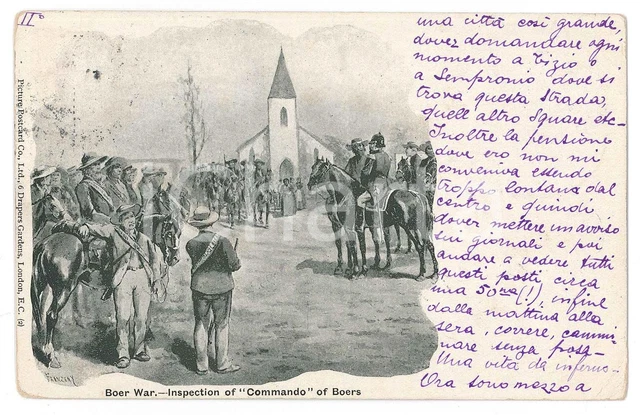 II°
una città così grande,
dover domandare ogni
momento a Tizio o
a Sempronio dove si
trova questa strada,
quell'altro Square etc-
Inoltre la pensione
dove ero non mi
conveniva essendo
troppo lontana dal
centro e quindi
dover mettere un avviso
sui giornali e poi
andare a vedere tutti
questi posti circa
una 50na (!), infine
dalla mattina alla
sera, correre, cammi
nare senza posa-
Una vita da inferno-
Ora sono mezzo a
Picture Postcard Co., Ltd., 6 Drapers Gardens, London, E.C. (2)
Boer War.—Inspection of "Commando" of Boers